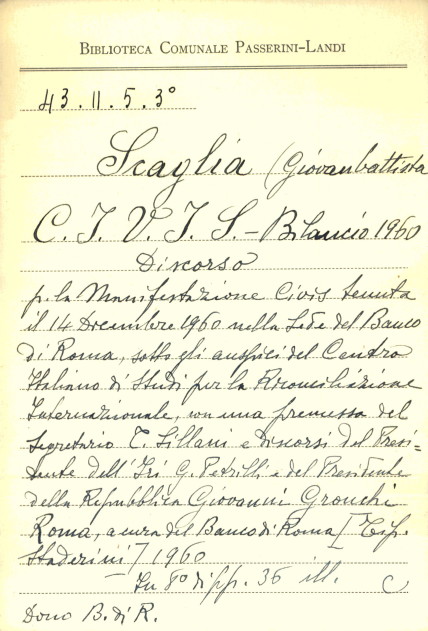 BIBLIOTECA COMUNALE PASSERINI-LANDI
43.II.5.3°
Scaglia (Giovanbattista
C. I. V. I. S. – Bilancio 1960
Discorso
p. la Manifestazione Civis tenuta
il 14 Dicembre 1960 nella Sede del Banco
di Roma, sotto gli auspici del Centro
Italiano di Studi per la Riconciliazione
Internazionale, con una premessa del
Segretario T. Sillani e discorsi del Presi=
dente dell'Iri G. Petrilli e del Presidente
della Repubblica Giovanni Gronchi
Roma, a cura del Banco di Roma [Tip.
Staderini] 1960
In 8° di pp. 36 ill.
C
Dono B. di R.